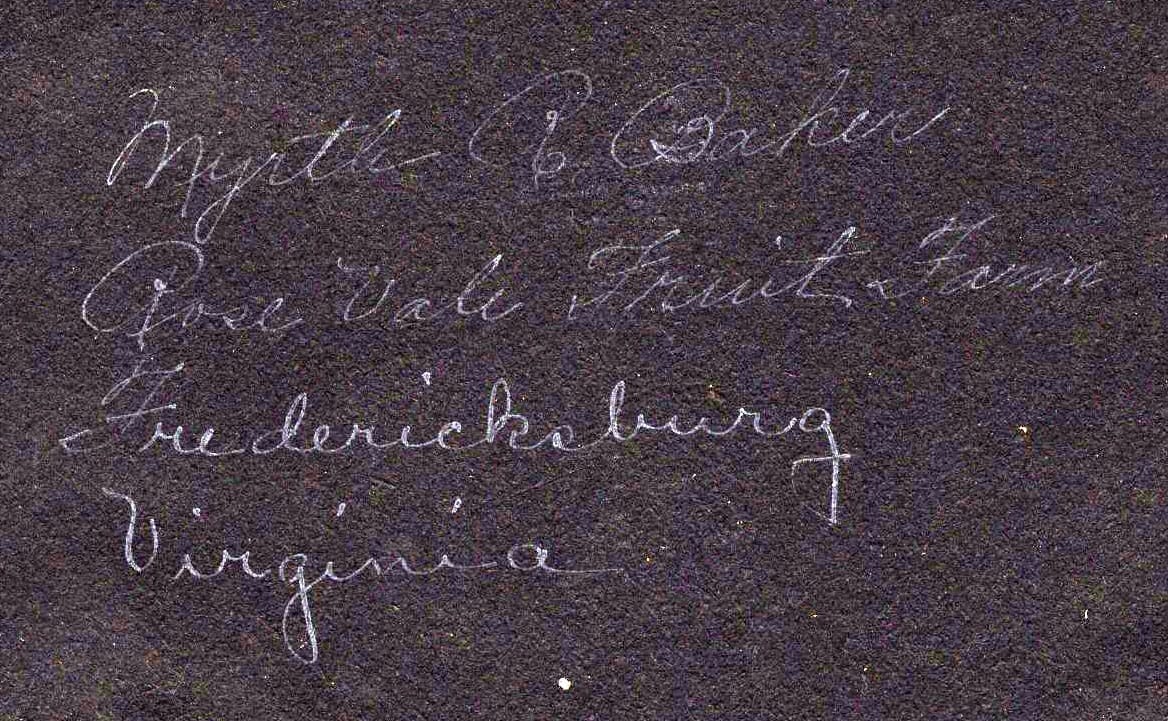 Myrtle R Baker
Rose Vale Fruit Farm
Fredericksburg
Virginia